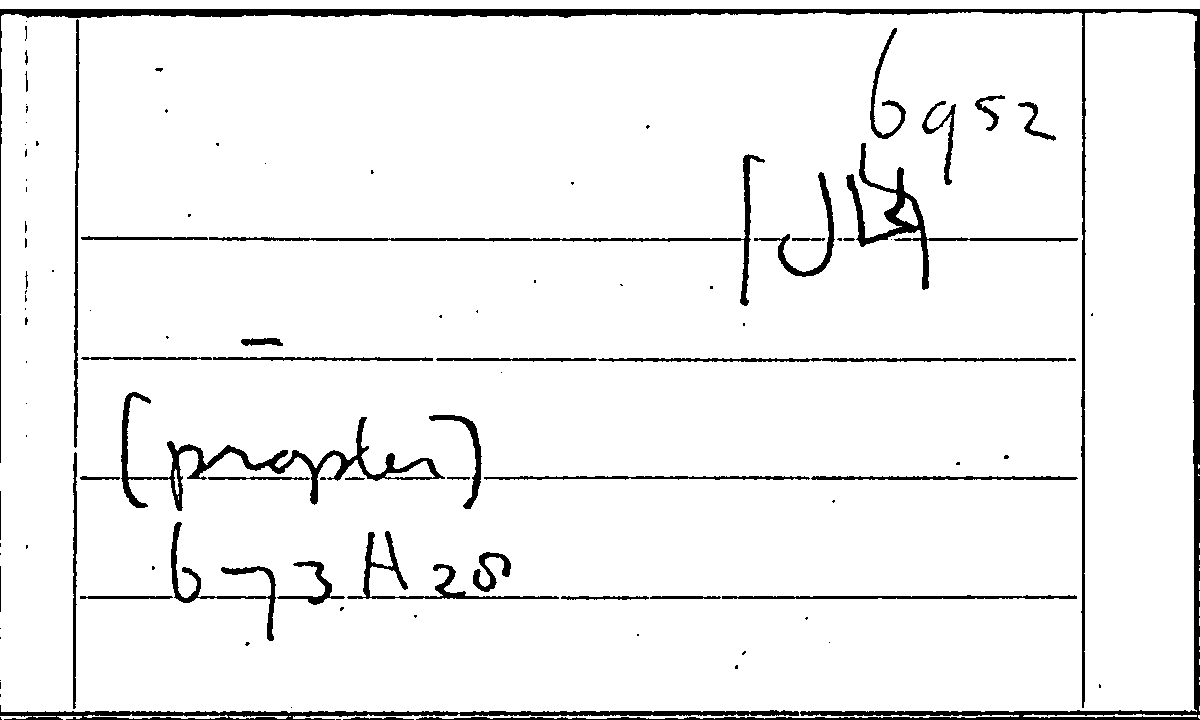 6952
[propter]
673A28